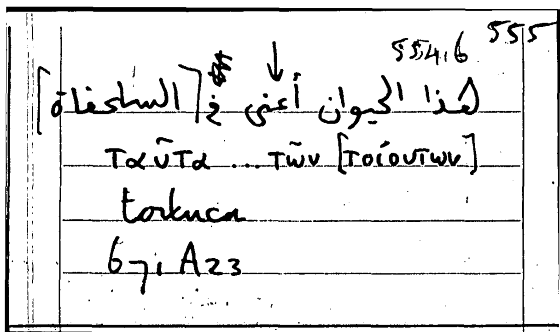 554,6 555
هذا الحيوان أعنى في [السلحفاة]
ταῦτα ... τῶν [τοίουτων]
tortuca
671 A23